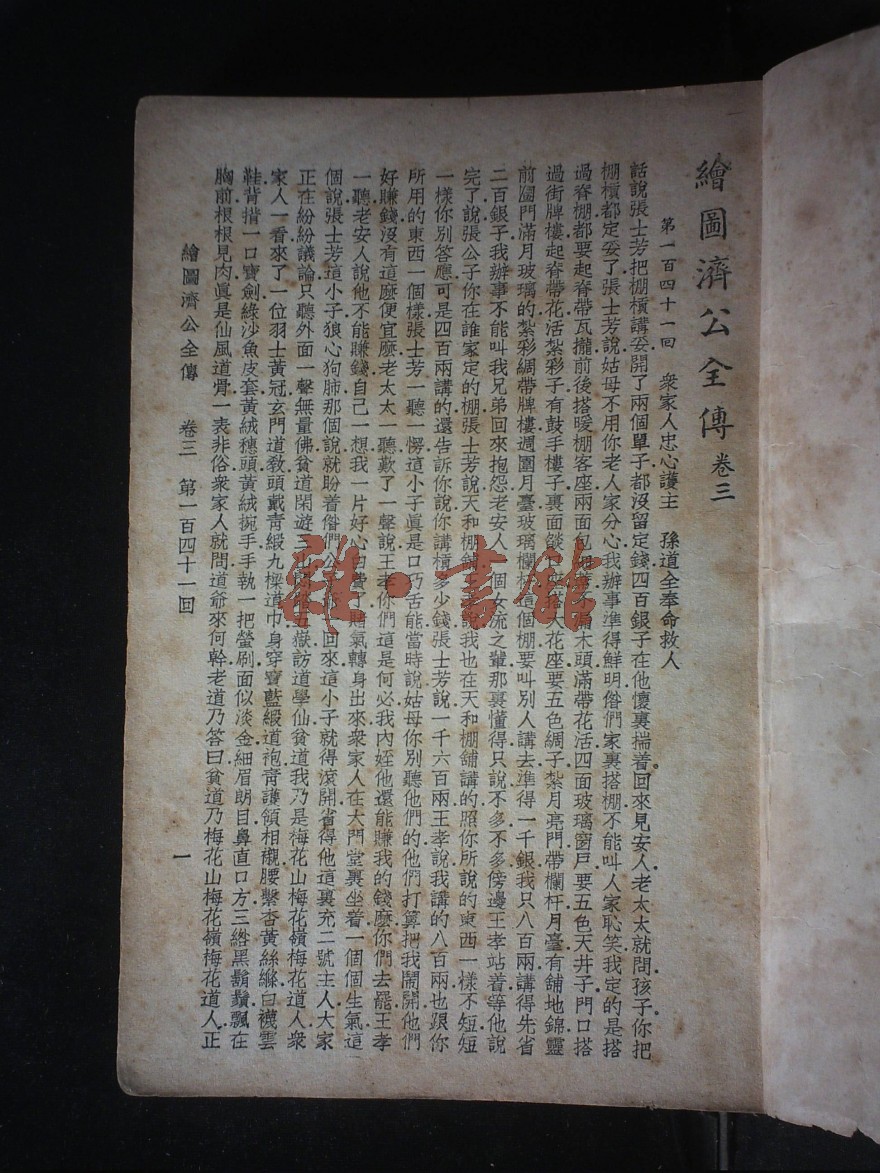 繪圖濟公全傳 卷三
第一百四十一回 衆家人忠心護主 孫道全奉命救人
話說張士芳把棚槓講妥開了兩個單子都沒留定錢四百銀子在他懷裏揣着回來見安人老太太就問孩子你把
棚槓都定妥了張士芳說姑母不用你老人家分心我辦事準得鮮明俗們家裏搭棚不能叫人家恥笑我定的是搭
過脊棚都要起脊帶瓦攏前後搭暖棚客座兩面包 木頭滿帶花活四面玻璃窗戶要五色天井子門口搭
過街牌樓起脊帶花活紮彩子有鼓手樓子裏面 搭大花座要五色綢子紮月亮門帶欄杆月臺有舖地錦靈
前圓門滿月玻璃的紮彩綢帶牌樓週圍月臺玻璃欄杆這個棚要叫別人講去準得一千銀我只八百兩講得先省
二百銀子我辦事不能叫我兄弟回來抱怨老安人一個女流之輩那裏懂得只說不多不多傍邊王孝站着等他說
完了說張公子你在誰家定的棚張士芳說天和棚舖 說我也在天和棚舖講的照你所說的東西一樣不短短
一樣你別答應可是四百兩講的還告訴你說你講槓多少錢張士芳說一千六百兩王孝說我講的八百兩也跟你
所用的東西一個樣張士芳一聽一愣這小子眞是口巧舌能當時說姑母你別聽他們的他們打算把我鬧開他們
好賺錢沒有這麽便宜麽老太太一聽歎了一聲說王孝你們這是何必我內姪他還能賺我的錢麽你們去罷王孝
一聽老安人說他不能賺錢自己一想我一片好心白費了賭氣轉身出來衆家人在大門堂裏坐着一個個生氣這
個說張士芳這小子狼心狗肺那個說就盼着俗們公 回來這小子就得滾開省得他這裏充二號主人大家
正在紛紛議論只聽外面一聲無量佛貧道閑遊三山 五嶽訪道學仙貧道我乃是梅花山梅花嶺梅花道人衆
家人一看來了一位羽士黃冠玄門道教頭戴青緞九樑道巾身穿寶藍緞道袍青護領相襯腰繫杏黃絲縧白襪雲
鞋背揹一口寶劍綠沙魚皮套黃絨穗頭黃絨挽手手執一把螢刷面似淡金細眉朗目鼻直口方三綹黑鬍鬚飄在
胸前根根見肉眞是仙風道骨一表非俗衆家人就問道爺來何幹老道乃答曰貧道乃梅花山梅花嶺梅花道人正
繪圖濟公全傳 卷三 第一百四十一回 一
雜·書館